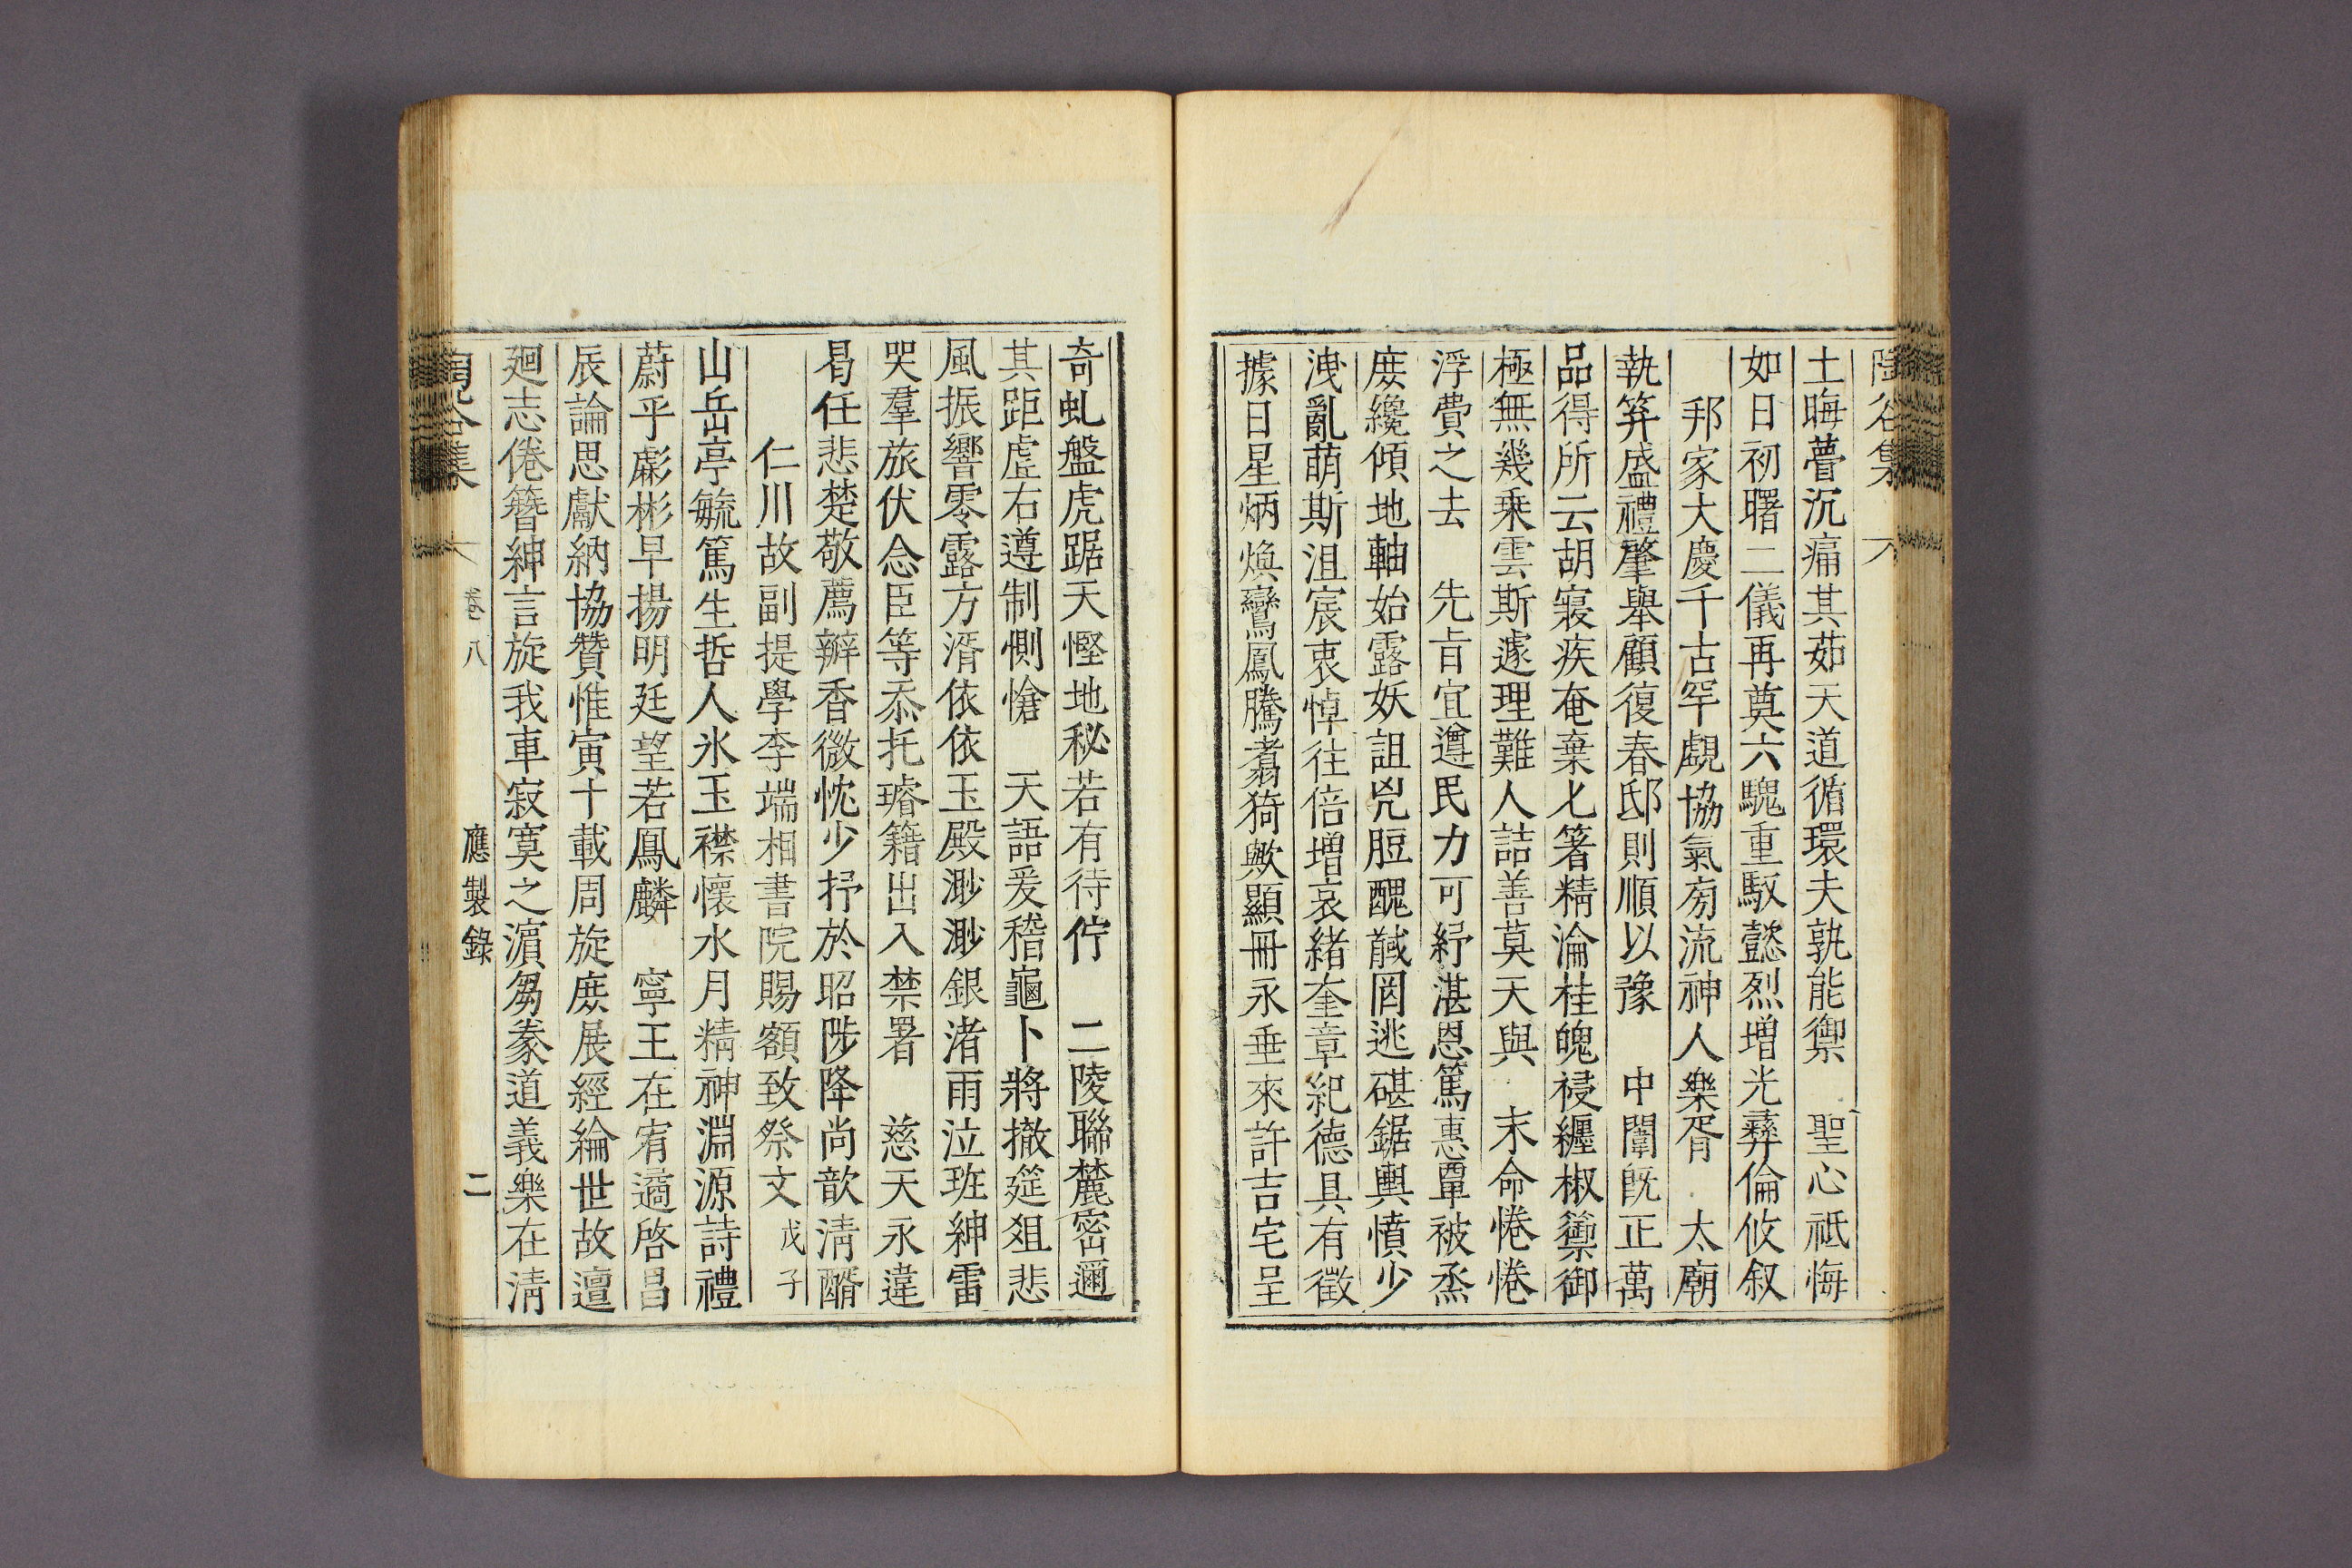 陶谷集
土晦瞢沉痛其茹天道循環夫孰能禦 聖心祗悔
如日初曙二儀再奠六騩重馭懿烈增光彝倫攸叙
邦家大慶千古罕覷協氣旁流神人樂胥 太廟
執筭盛禮肇舉顧復春邸則順以豫 中闈旣正萬
品得所云胡寢疾奄棄匕箸精淪桂魄祲纏椒籞御
極無幾乗雲斯遽理難人詰善莫天與 末命惓惓
浮費之去 先旨宜遵民力可紓湛恩篤惠覃被烝
庶纔傾地軸始露妖詛兇脰醜馘罔逃碪鋸輿憤少
洩亂萌斯沮宸衷悼往倍增哀緖奎章紀德具有徵
據日星炳煥鸞鳳騰翥猗歟顯冊永垂來許吉宅呈
奇虬盤虎踞天慳地秘若有待佇 二陵聯麓密邇
其距虛右遵制惻愴 天語爰稽龜卜將撤筵爼悲
風振響零露方湑依依玉殿渺渺銀渚雨泣班紳雷
哭羣旅伏念臣等忝托璿籍出入禁署 慈天永違
曷任悲楚敬薦瓣香微忱少抒於昭陟降尚歆淸醑
仁川故副提學李端相書院賜額致祭文 戊子
山岳亭毓篤生哲人氷玉襟懷水月精神淵源詩禮
蔚乎彪彬早揚明廷望若鳳麟 寧王在宥適啓昌
辰論思獻納協贊惟寅十載周旋庶展經綸世故邅
廻志倦簪紳言旋我車寂寞之濱芻豢道義樂在淸
陶谷集 卷八 應製錄 二